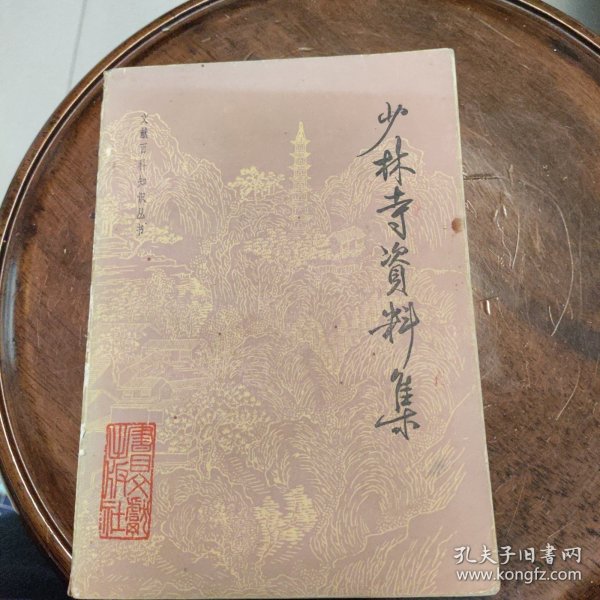 少林寺資料集
文献百科知识丛书
書目文獻
出版社
孔夫子旧书网
www.kongfz.com